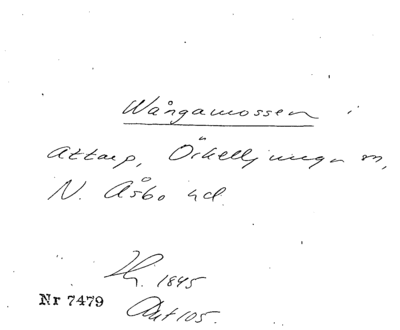 Wångamossen i
Attarp, Örkelljunga sn,
N. Åsbo hd.
1845
Nr 7479
Ant 105.